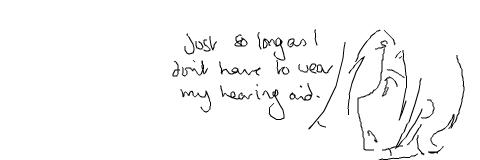 Just so long as I
don't have to wear
my hearing aid.